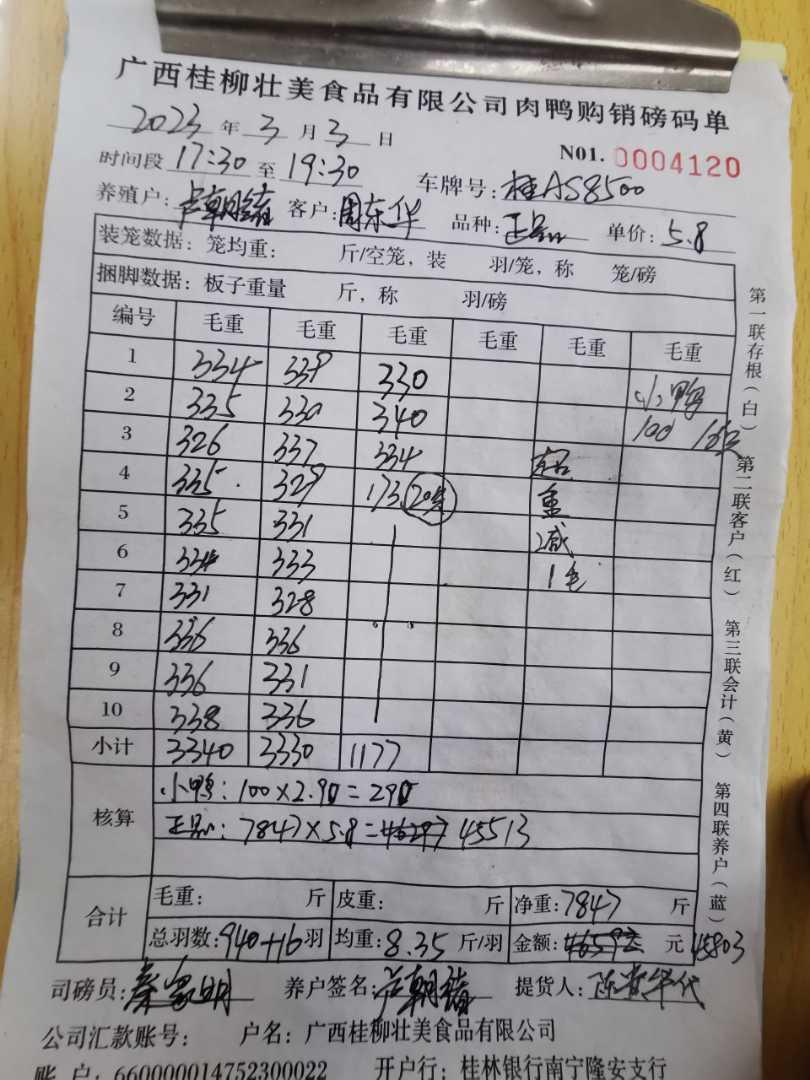 广西桂柳壮美食品有限公司肉鸭购销磅码单
2023 年 3 月 3 日
N01. 0004120
时间段 17:30 至 19:30
车牌号: 桂AS8500
养殖户: 卢朝绪 客户: 周东华 品种: 正品 单价: 5.8
装笼数据: 笼均重: 斤/空笼, 装 羽/笼, 称 笼/磅
捆脚数据: 板子重量 斤, 称 羽/磅
编号 毛重 毛重 毛重 毛重 毛重 毛重
1 334 339 330 小鸭
2 335 330 340 100
3 326 337 334 超
4 335 329 173 20只 重
5 335 331 减
6 334 333 1毛
7 331 328
8 336 336
9 336 331
10 338 336
小计 3340 3330 1177
核算
小鸭: 100×2.90=290
正品: 7847×5.8= 45513
合计
毛重: 斤 皮重: 斤 净重: 7847 斤
总羽数: 940+16 羽 均重: 8.35 斤/羽 金额: 元 45803
司磅员: 秦家明 养户签名: 卢朝绪 提货人:
公司汇款账号: 户名: 广西桂柳壮美食品有限公司
账 户: 660000014752300022 开户行: 桂林银行南宁隆安支行
第一联存根(白)
第二联客户(红)
第三联会计(黄)
第四联养户(蓝)